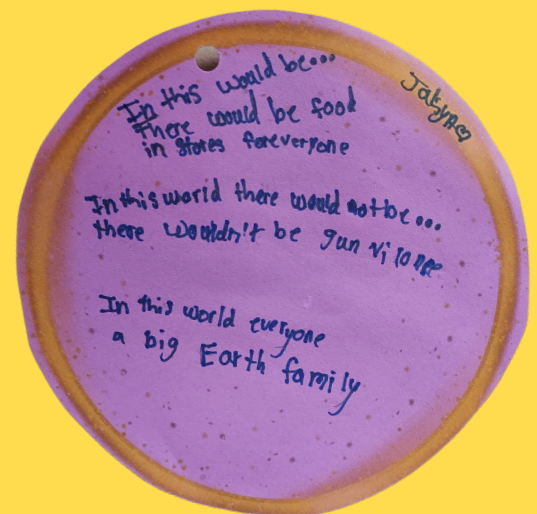 In this would be...
There would be food
in stores foreveryone
In this world there would not be...
there wouldn't be gun vilonce
In this world everyone
a big Earth family